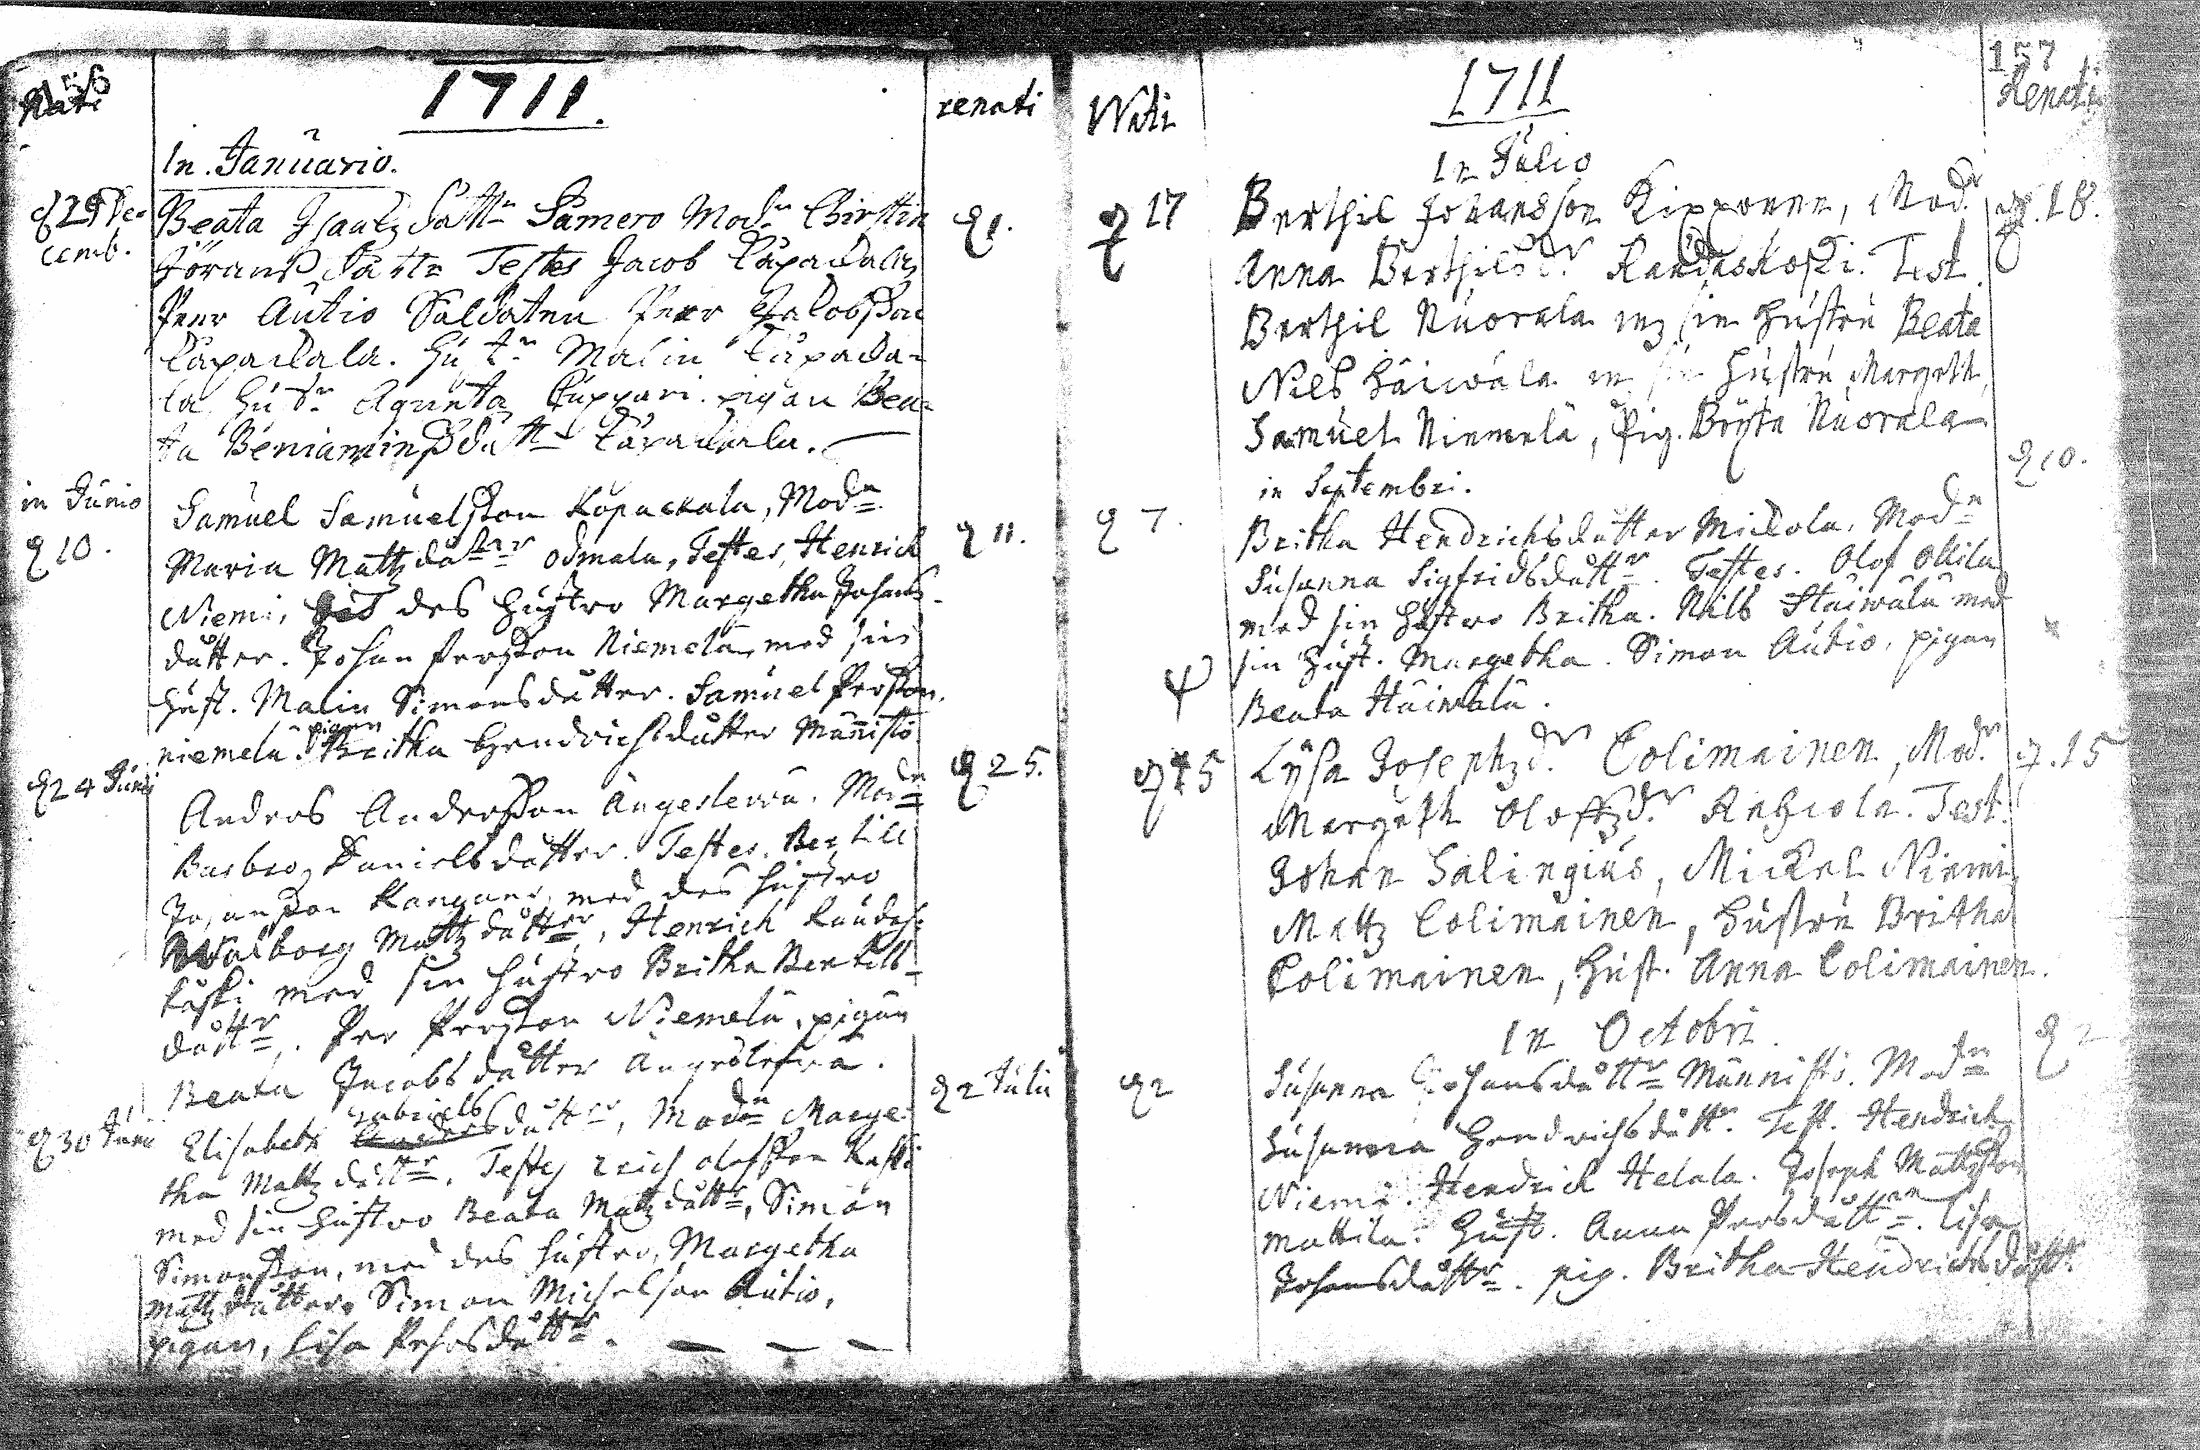 156
Nati
1711.
renati
In Januario.
d 29 De-
cemb.
Beata Isaacz dottr Samero Modr Chirstin
d 1.
Jöranß dotter Testes Jacob Kåpackala,
Peer Autio Soldaten Peer Jacobßon
Kåpackala. Hust. Malin Kåpacka-
la, Hust. Agneta Kuppari. pigan Bea-
ta Beniaminßdottr Kåpackala.
in Junio
Samuel Samuelsson Kopackala, Modr
d 10.
Maria Mattzdotter odmala, Testes, Henrich
d 11.
Niemi, des Hustro Margetha Johans-
dotter. Johan Persson Niemelä, med sin
Hust. Malin Simonsdotter. Samuel Persson.
niemelä. pigan Britha Hendrichsdotter Männistö
d 24 Junij
Anders Andersson Ängeslevä. Modr
d 25.
Barbro Danielsdotter. Testes. Bertill
Johansson Kangane, med des Hustro
Walborg Mattzdotter, Henrich Raudas-
koski med sin Hustro Britha Bertils-
dottr. Per Persson Niemelä, pigan
Beata Jacobsdotter Ängeslefvä.
d 30 Junij
Elisabeth gabriels dotter, Modr Marge-
d 2 Julii
tha Mattzdottr, Testes Erich olofsson Kasti
med sin Hustro Beata Mattzdottr, Simon
Simonsson, med des Hustro, Margetha
mattzdotter, Simon Michelson Autio,
pigan, Lisa Persdottr.
157
Nati
1711
Renati
In Julio
17
Berthil Johansson Kipponen, Modr
18.
Anna Berthilsdr. Raudaskoski. Test.
Berthil Nuorala mz sin Hustru Beata
Nils Häiwälä mz sin Hustru Margeth,
Samuel Niemelä, Pig. Bryta Nuorala
in Septembri.
d 10.
d 7.
Britha Hendrichsdotter Mickola. Modr
Susanna Sigfridsdottr. Testes. Olof Ollila
med sin Hustro Britha. Nils Häiwälä med
sin Hust. Margetha. Simon Autio, pigan
Beata Häiwälä.
15
Lysa Josephzdr. Colimainen, Modr.
15
Margeth Oloffzdr. Anhiola. Test.
Johan Salingius, Mickel Niemi,
Mattz Colimainen, Hustru Britha
Colimainen, Hust. Anna Colimainen.
In Octobri.
d 2
d 2
Susanna Johansdottr Männistö. Modr
Susanna Hendrichsdottr. Test. Hendrich
Niemi. Hendrich Helala. Joseph Mattsson
mattila. Hust. Anna Persdottr. Lisa
Johansdottr. pig. Britha Hendrichsdottr.